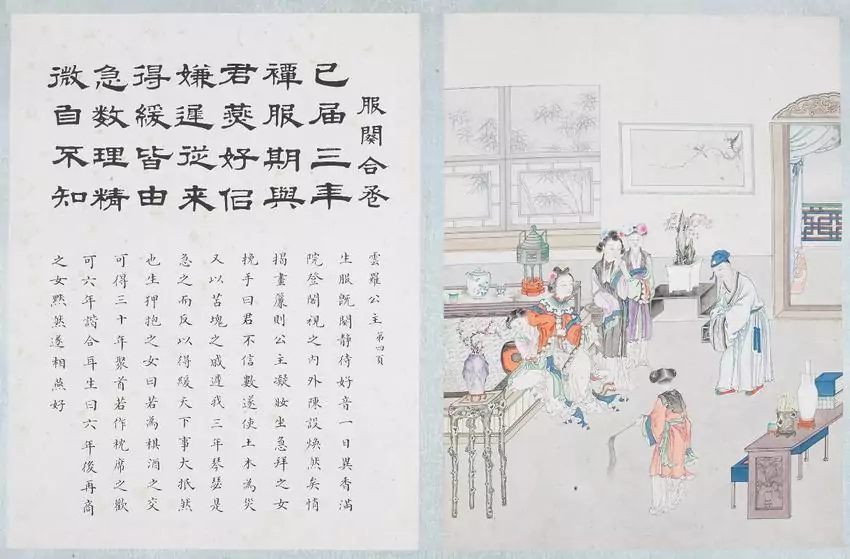 服闋合巹
已届三年
禫服期與
君燕好侣
嫌遲從来
得緩皆由
急数理精
微自不知
雲羅公主 第四頁
生服既闋静待好音一日異香滿
院登閣視之内外陳設煥然矣悄
揭畫簾則公主凝妝坐急拜之女
挽手曰君不信數遂使土木為災
又以苫塊之戚遲我三年琴瑟是
急之而反以得緩天下事大抵然
也生狎抱之女曰若為棋酒之交
可得三十年聚首若作枕席之歡
可六年諧合耳生曰六年後再商
之女黙然遂相燕好